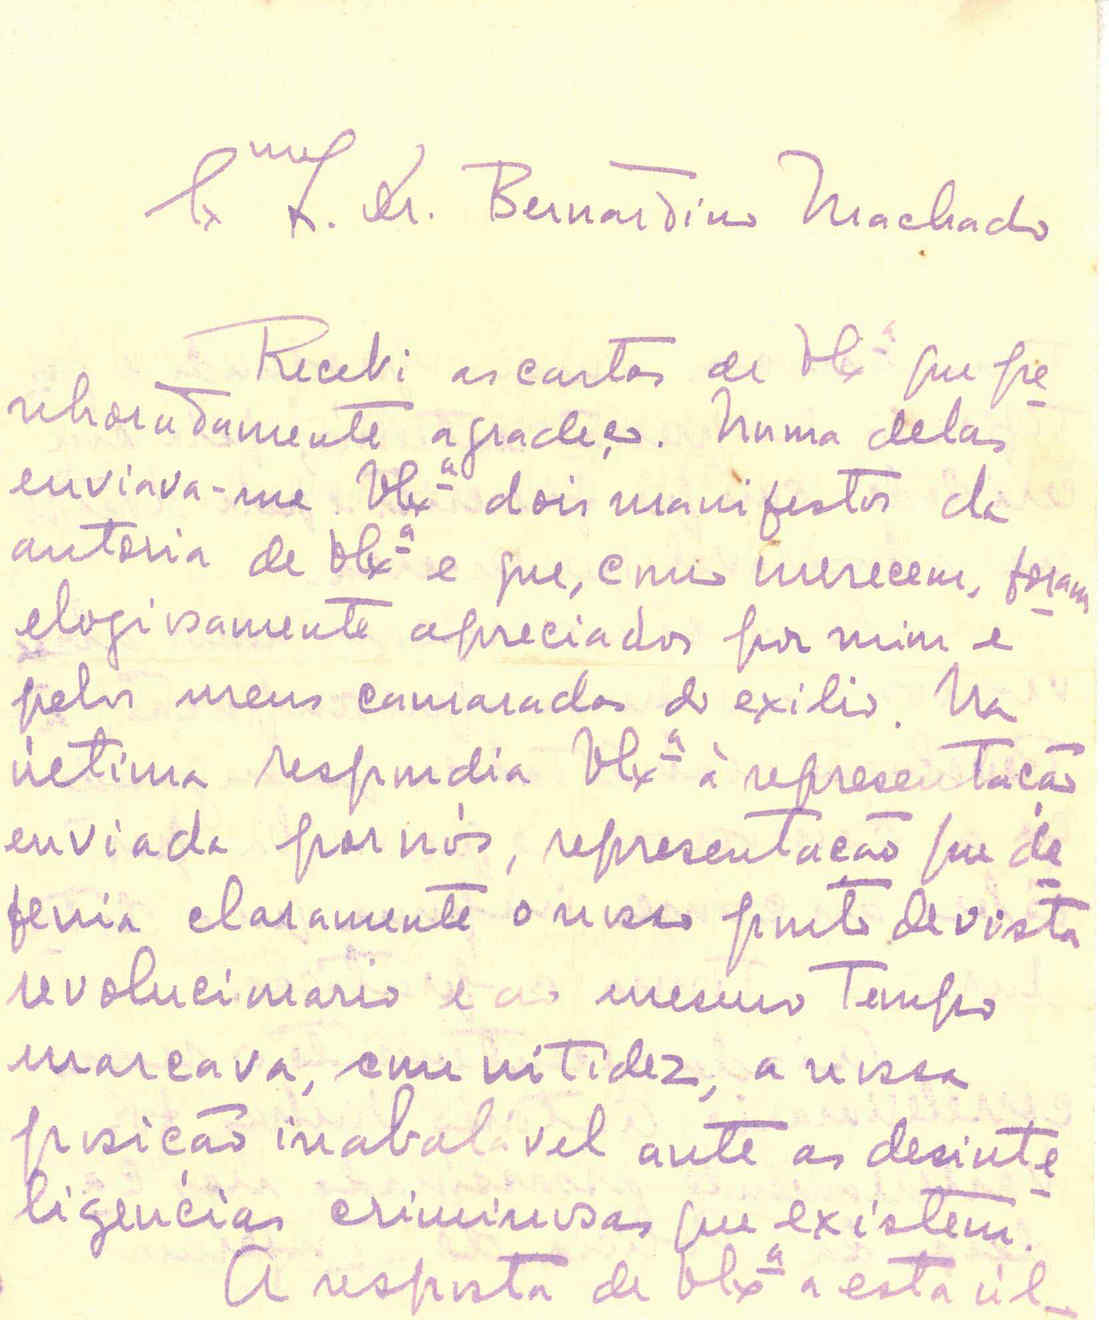 Exmo Sr. Dr. Bernardino Machado
Recebi as cartas de VExª que pe
nhoradamente agradeço. Numa delas
enviava-me VExª dois manifestos da
autoria de VExª e que, como merecem, foram
elogiosamente apreciados por mim e
pelos meus camaradas do exilio. Na
última respondia VExª à representação
enviada por nós, representação que de
fenia claramente o nosso ponto de vista
revolucionario e ao mesmo tempo
marcava, com nitidez, a nossa
posição inabalável ante as desinte
ligências criminosas que existem.
A resposta de VExª a esta úl-